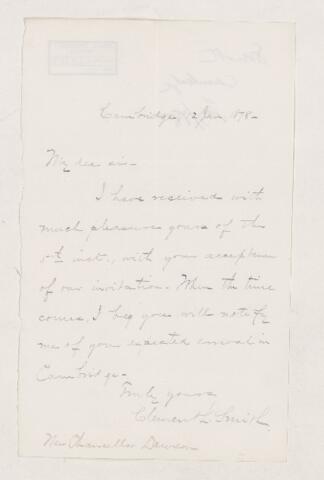 Cambridge, 12 Jan, 1878-
My dear sir-
I have received with
much pleasure yours of the
5th inst., with your acceptance
of our invitation. When the time
comes, I beg you will notify
me of your expected arrival in
Cambridge-
Truly yours
Clement L. Smith.
Chancellor Dawson